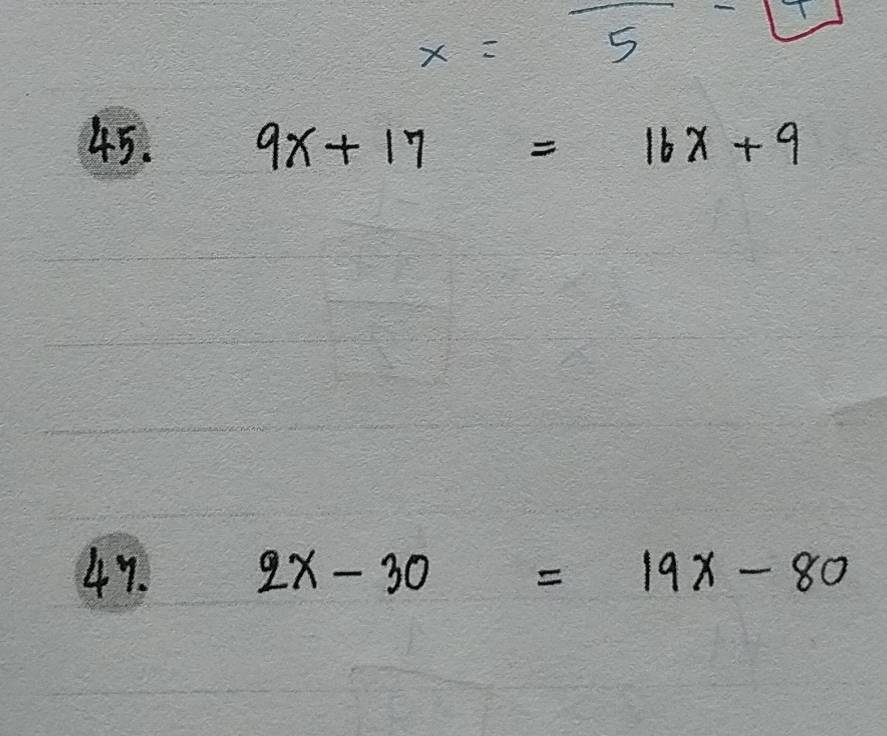 x = 5 -
45. 9x + 17 = 16x + 9
47. 2x - 30 = 19x - 80